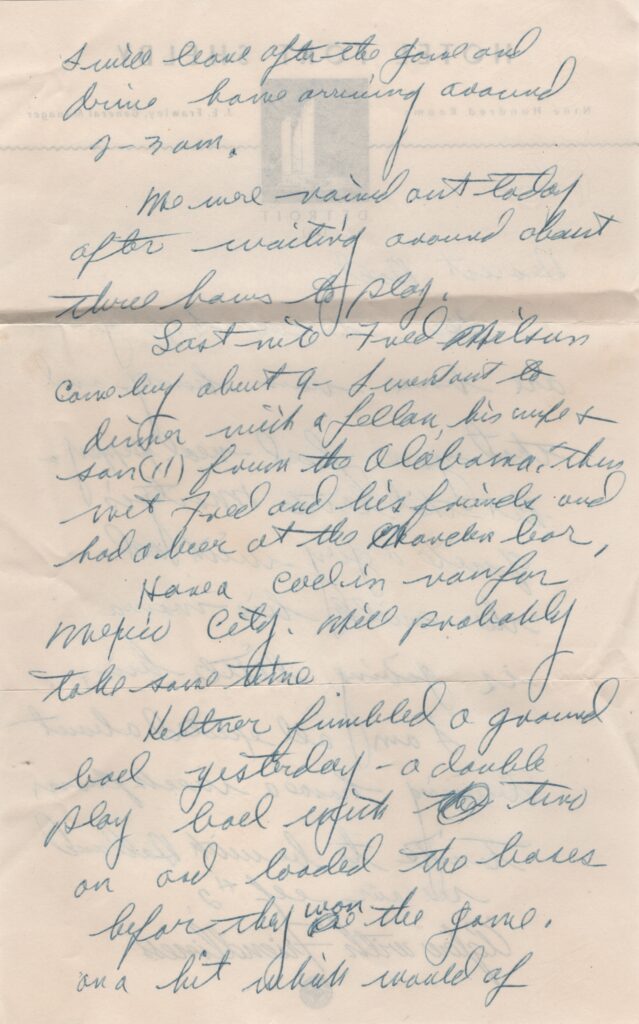 I will leave after the game and
drive home arriving around
2-3 am.
We were rained out today
after waiting around about
three hours to play.
Last nite Fred Wilson
came by about 9 - I went out to
dinner with a fellow, his wife +
son (11) from the Alabama, then
met Fred and his friends and
had a beer at the bar,
Have a call in now for
Mexico City. Will probably
take some time
Keltner fumbled a ground
ball yesterday - a double
play ball with two
on and loaded the bases
befor they won the game.
on a hit which would of
DETROIT
J. E. Frawley, General Manager